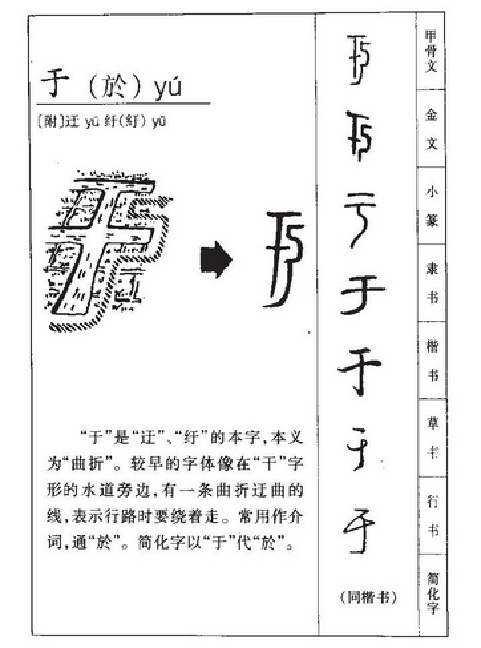 于（於）yú
〔附〕迂 yū 纡(紆) yū
“于”是“迂”、“纡”的本字，本义
为“曲折”。较早的字体像在“干”字
形的水道旁边，有一条曲折迂曲的
线，表示行路时要绕着走。常用作介
词，通“於”。简化字以“于”代“於”。
于
于
于
于
于
于
于
（同楷书）
甲骨文
金文
小篆
隶书
楷书
草书
行书
简化字